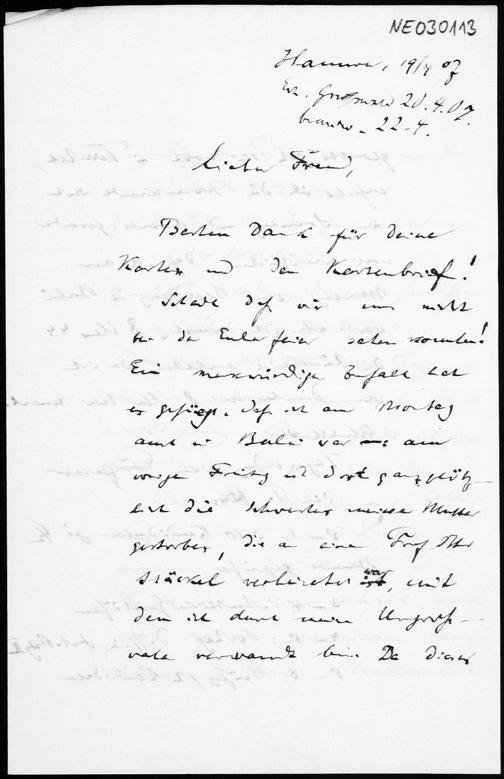 NE030113
Hannover, 19/4 07
Erh. Greifswald 20.4.07.
beantw. 22.4.
Lieber Freund,
Besten Dank für deine
Karten und den Kartenbrief!
Schade daß wir uns nicht
bei der Eulerfeier sehen konnten!
Ein merkwürdiger Zufall hat
es gefügt, daß ich am Montag
auch in Berlin war am
vorigen Freitag ist dort ganz plötz-
lich die Schwester meiner Mutter
gestorben, die an einen Prof Otto
Stäckel verheiratet war, mit
dem ich durch meinen Urgroß-
vater verwandt bin. Da dieser